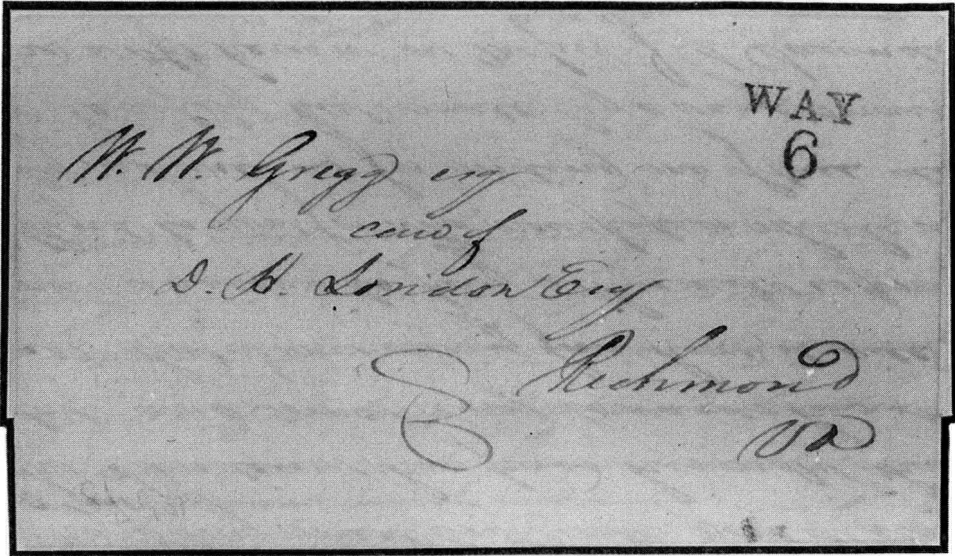 WAY
6
W. W. Gregg esq
care of
D. H. London Esq
Richmond
Va